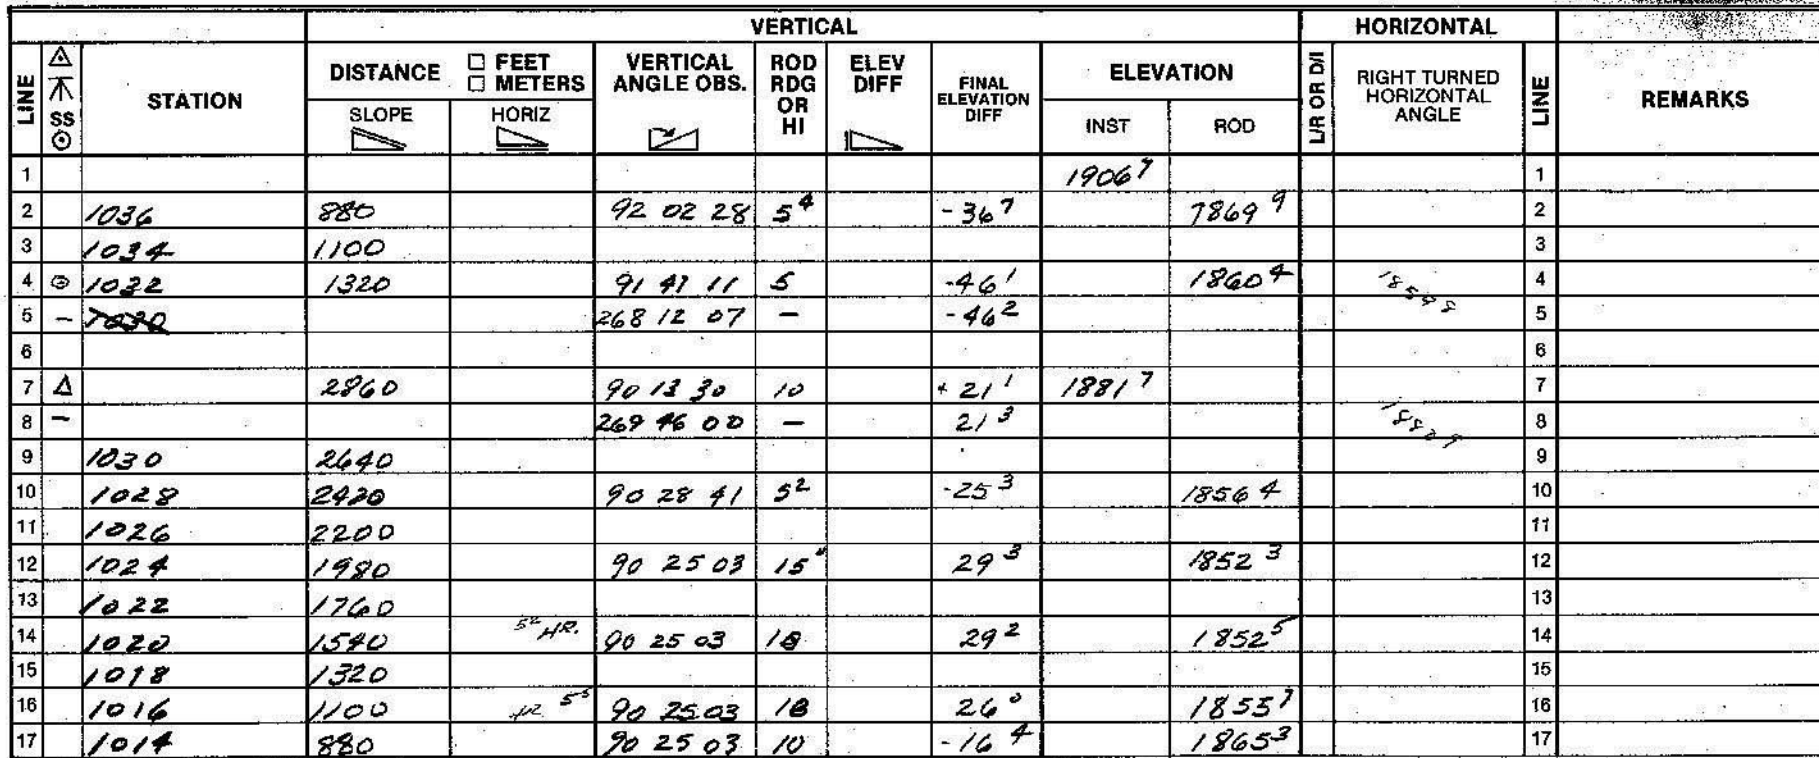 VERTICAL HORIZONTAL
LINE SS STATION DISTANCE □ FEET □ METERS VERTICAL ANGLE OBS. ROD RDG OR HI ELEV DIFF FINAL ELEVATION DIFF ELEVATION L/R OR D/I RIGHT TURNED HORIZONTAL ANGLE LINE REMARKS
SLOPE HORIZ INST ROD
1 1906⁷ 1
2 1036 880 92 02 28 5⁴ -36⁷ 1869⁹ 2
3 1034 1100 3
4 1032 1320 91 47 11 5 -46¹ 1860⁴ 4
5 - 1030 268 12 07 - -46² 5
6 6
7 Δ 2860 90 13 30 10 +21¹ 1881⁷ 7
8 - 269 46 00 - 21³ 8
9 1030 2640 9
10 1028 2420 90 28 41 5² -25³ 1856⁴ 10
11 1026 2200 11
12 1024 1980 90 25 03 15 29³ 1852³ 12
13 1022 1760 13
14 1020 1540 5² HR. 90 25 03 29² 1852⁵ 14
15 1018 1320 15
16 1016 1100 HR 5⁵ 90 25 03 26⁰ 1855⁷ 16
17 1014 880 90 25 03 10 -16⁴ 1865³ 17